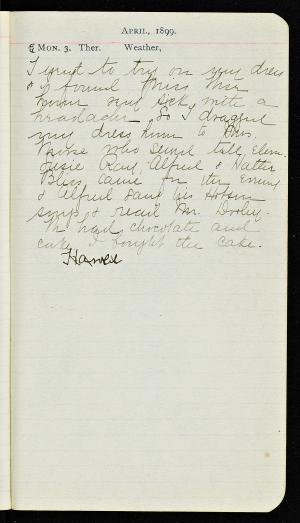 April, 1899.
Mon. 3. Ther. Weather,
I went to try on my dress
& found Miss
sick with a
headache. So I dragged
my dress home to Mrs.
Morse who sewed till eleven.
Josie Ray, Alfred & Hattie
Bliss came in the evening
& Alfred sang his Hobson
song & read Mr. Dooley.
We had chocolate and
cake. I bought the cake.